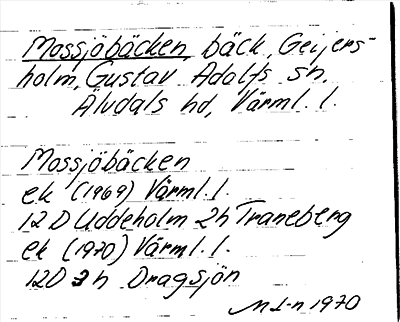 Mossjöbäcken, bäck, Geijers-
holm, Gustav Adolfs sn,
Älvdals hd, Värml. l.
Mossjöbäcken
ek (1969) Värml. l.
12 D Uddeholm 2h Traneberg
ek (1970) Värml. l.
12D 3h Dragsjön
1970